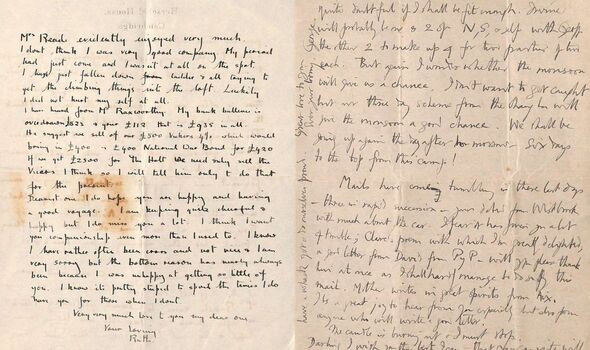 Mrs Reade evidently enjoyed very much.
I dont think I was very good company. My period
had just come and I wasnt at all on the spot.
I had just fallen down from ladder & all trying to
get the climbing things into the loft. Luckily
I did not hurt my self at all.
I have heard from Mr. My bank balance is
overdrawn & a year that is £935 in all.
He suggest we sell of our £500 Vickers 4% which would
bring in £400 & £400 National War Bond for £420
If we get £2500 for The Holt we need only sell the
Vickers I think so I will tell him only to do that
for the present.
Dearest one I do hope you are happy and having
a good voyage. I am keeping quite cheerful &
happy but I do miss you a lot. I think I want
your companionship even more than I used to. I know
I have rather often been cross and not nice & I am
very sorry but the bottom reason has nearly always
been because I was unhappy at getting so little of
you. I know it's pretty stupid to spoil the times I do
have you for those when I dont.
Very very much love to you my dear one.
Your loving
Ruth
quite doubtful if I shall be fit enough.
will probably be 1 & 2 of N.S., & self with
the other 2 to make up 4 for two parties of two
each. But again I wonder whether the monsoon
will give us a chance. I don't want to get caught
but our three day scheme from the Chang La will
give the monsoon a good chance. We shall be
going up again the day after to-morrow. Six days
to the top from this camp!
Mails have come tumbling in these last days
- three in rapid succession - your joint from Westbrook
with much about the car. I fear it has given you a lot
of trouble; Clare's poem with which I'm greatly delighted,
a joint letter from David from Pyg. - will you please thank
him at once as I shall hardly manage to do so by this
mail. Mother writes in great spirits from Aix.
It is a great joy to hear from you especially but also from
anyone who will write a good letter.
The candle is burning out & I must stop.
Darling I wish you the best I can - that